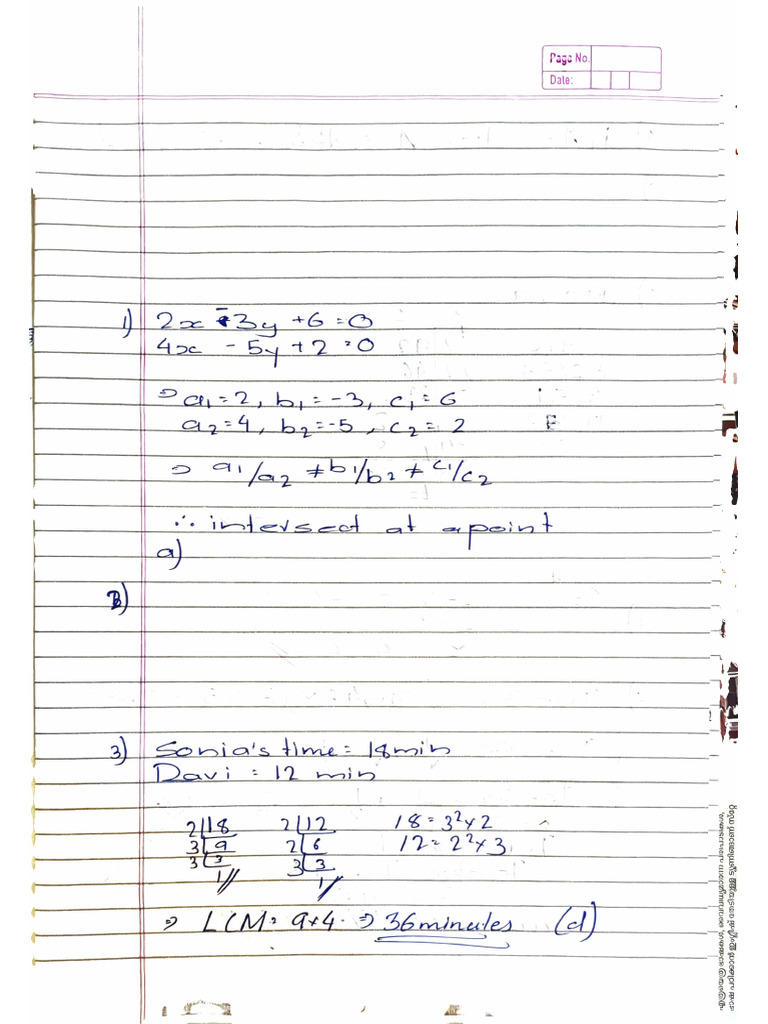 Page No.
Date:
1) 2x - 3y + 6 = 0
4x - 5y + 2 = 0
⇒ a₁ = 2, b₁ = -3, c₁ = 6
a₂ = 4, b₂ = -5, c₂ = 2
⇒ a₁/a₂ ≠ b₁/b₂ ≠ c₁/c₂
∴ intersect at a point
a)
2)
3) Sonia's time = 18 min
Davi = 12 min
2|18 2|12 18 = 3² × 2
3|9 2|6 12 = 2² × 3
3|3 3|3
1// 1//
⇒ LCM = 9×4 ⇒ 36 minutes (d)